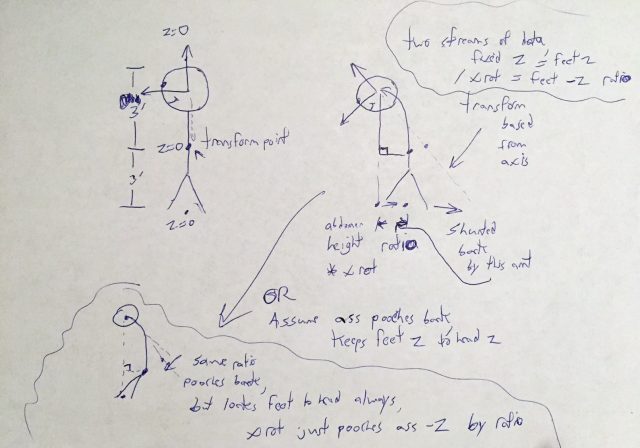 Z=0
3'
3'
Z=0
transform point
Z=0
two streams of data
fixed Z = feet Z
/ xrot = feet -Z ratio
transform
based
from
axis
abdomen
height ratio
* xrot
shunted
back
by this amt
OR
Assume ass pooches back,
keeps feet Z to head Z
same ratio
pooches back,
but locks feet to head always,
xrot just pooches ass -Z by ratio